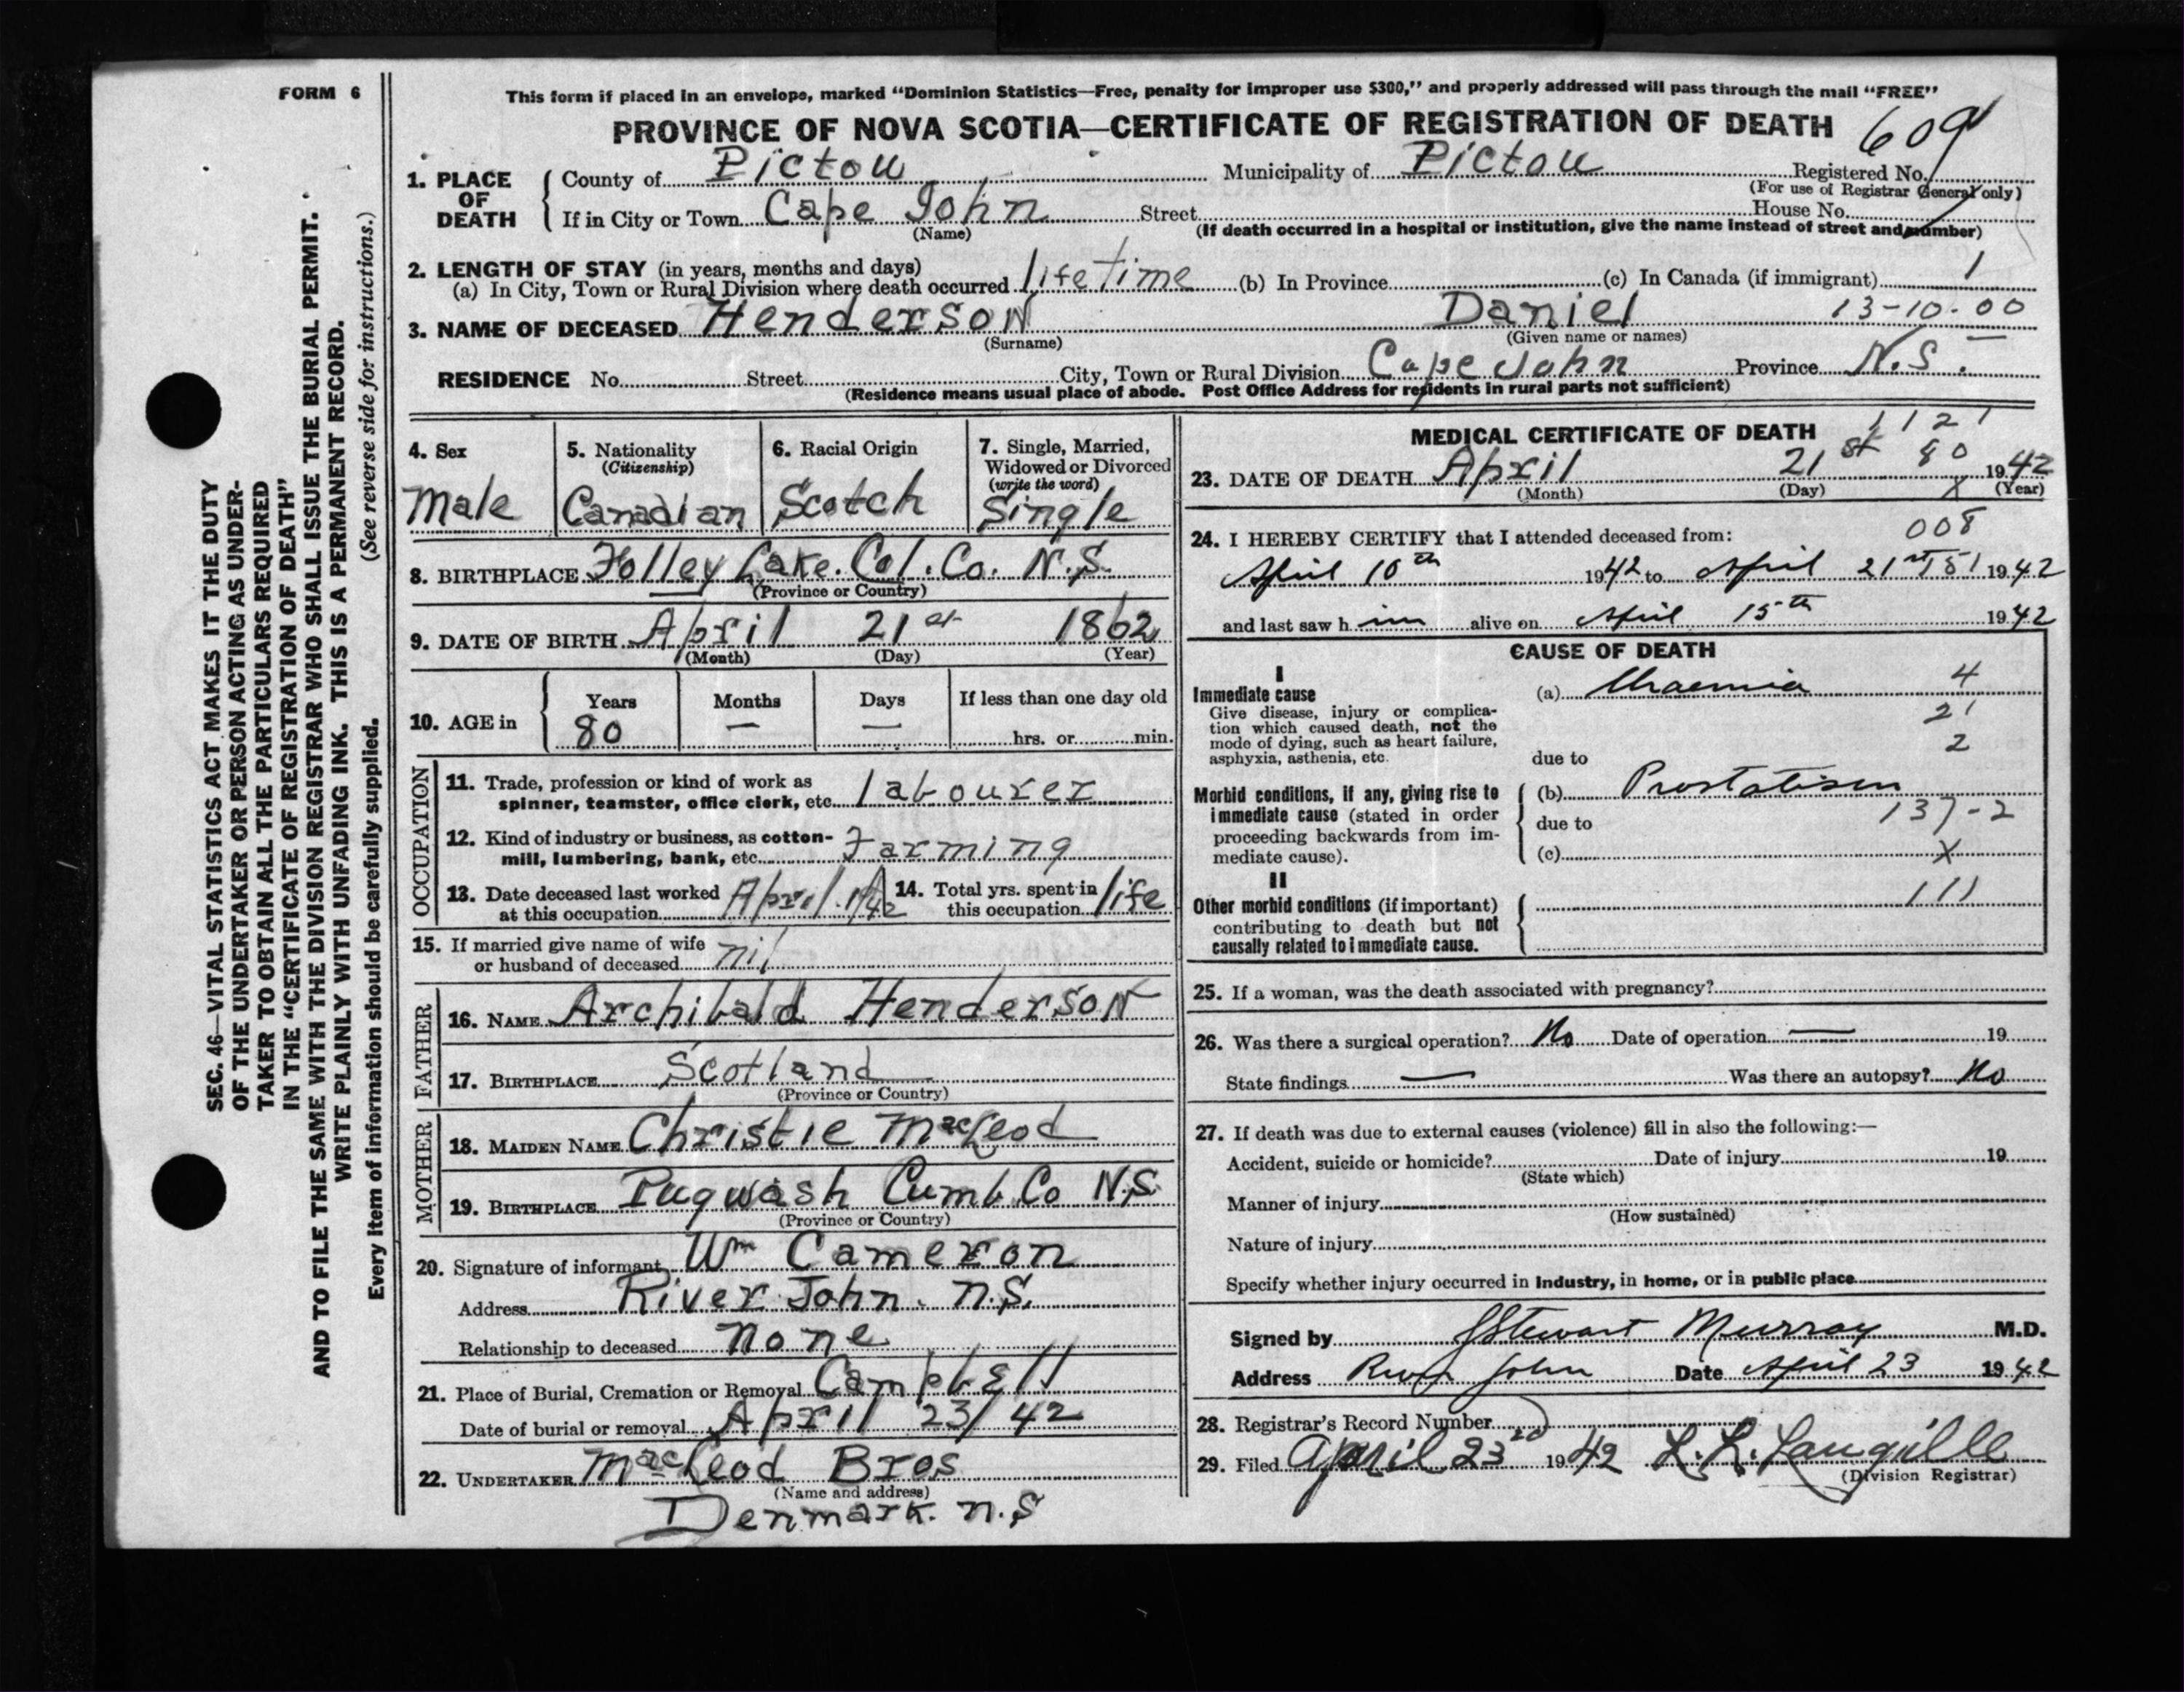 FORM 6
This form if placed in an envelope, marked "Dominion Statistics—Free, penalty for improper use $300," and properly addressed will pass through the mail "FREE"
PROVINCE OF NOVA SCOTIA—CERTIFICATE OF REGISTRATION OF DEATH
609
1. PLACE OF DEATH
County of Pictou Municipality of Pictou Registered No.
(For use of Registrar General only)
If in City or Town Cape John Street House No.
(Name) (If death occurred in a hospital or institution, give the name instead of street and number)
2. LENGTH OF STAY (in years, months and days)
(a) In City, Town or Rural Division where death occurred life time (b) In Province (c) In Canada (if immigrant) 1
3. NAME OF DECEASED Henderson Daniel 13-10-00
(Surname) (Given name or names)
RESIDENCE No. Street City, Town or Rural Division Cape John Province N.S.
(Residence means usual place of abode. Post Office Address for residents in rural parts not sufficient)
4. Sex
Male
5. Nationality
(Citizenship)
Canadian
6. Racial Origin
Scotch
7. Single, Married,
Widowed or Divorced
(write the word)
Single
8. BIRTHPLACE Folley Lake. Col. Co. N.S.
(Province or Country)
9. DATE OF BIRTH April 21st 1862
(Month) (Day) (Year)
10. AGE in
Years Months Days If less than one day old
80 — — hrs. or min.
OCCUPATION
11. Trade, profession or kind of work as
spinner, teamster, office clerk, etc. labourer
12. Kind of industry or business, as cotton-
mill, lumbering, bank, etc. Farming
13. Date deceased last worked
at this occupation April
14. Total yrs. spent in
this occupation life
15. If married give name of wife
or husband of deceased nil
FATHER
16. NAME Archibald Henderson
17. BIRTHPLACE Scotland
(Province or Country)
MOTHER
18. MAIDEN NAME Christie MacLeod
19. BIRTHPLACE Pugwash Cumb. Co N.S.
(Province or Country)
20. Signature of informant Wm Cameron
Address River John. N.S.
Relationship to deceased None
21. Place of Burial, Cremation or Removal Campbell
Date of burial or removal April 23/42
22. UNDERTAKER MacLeod Bros
(Name and address)
Denmark. N.S
MEDICAL CERTIFICATE OF DEATH
1121
80
23. DATE OF DEATH April 21st 1942
(Month) (Day) X (Year)
24. I HEREBY CERTIFY that I attended deceased from: 008
April 10th 1942 to April 21st 1942
and last saw him alive on April 15th 1942
CAUSE OF DEATH
I
Immediate cause
Give disease, injury or complica-
tion which caused death, not the
mode of dying, such as heart failure,
asphyxia, asthenia, etc.
(a) Uraemia 4
21
2
due to
Morbid conditions, if any, giving rise to
immediate cause (stated in order
proceeding backwards from im-
mediate cause).
(b) Prostatism
due to 137-2
(c) X
II
Other morbid conditions (if important)
contributing to death but not
causally related to immediate cause.
111
25. If a woman, was the death associated with pregnancy?
26. Was there a surgical operation? No Date of operation — 19
State findings — Was there an autopsy? No
27. If death was due to external causes (violence) fill in also the following:—
Accident, suicide or homicide? Date of injury 19
(State which)
Manner of injury
(How sustained)
Nature of injury
Specify whether injury occurred in Industry, in home, or in public place
Signed by Stewart Murray M.D.
Address River John Date April 23 1942
28. Registrar's Record Number
29. Filed April 23rd 1942 L. R. Langille
(Division Registrar)
SEC. 46—VITAL STATISTICS ACT MAKES IT THE DUTY
OF THE UNDERTAKER OR PERSON ACTING AS UNDER-
TAKER TO OBTAIN ALL THE PARTICULARS REQUIRED
IN THE "CERTIFICATE OF REGISTRATION OF DEATH"
AND TO FILE THE SAME WITH THE DIVISION REGISTRAR WHO SHALL ISSUE THE BURIAL PERMIT.
WRITE PLAINLY WITH UNFADING INK. THIS IS A PERMANENT RECORD.
(See reverse side for instructions.)
Every item of information should be carefully supplied.